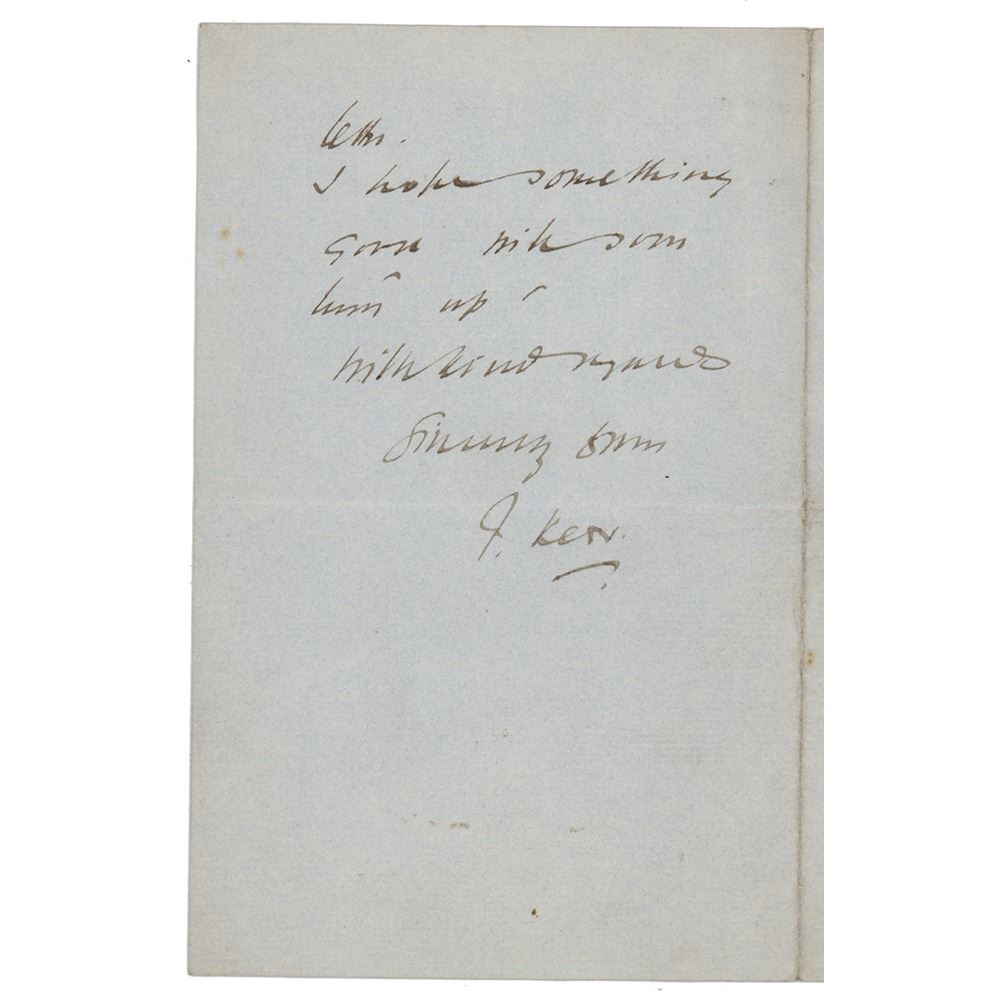 letter.
I hope something
good will soon
turn up
with kind regards
Sincerely yours
J. Kerr.